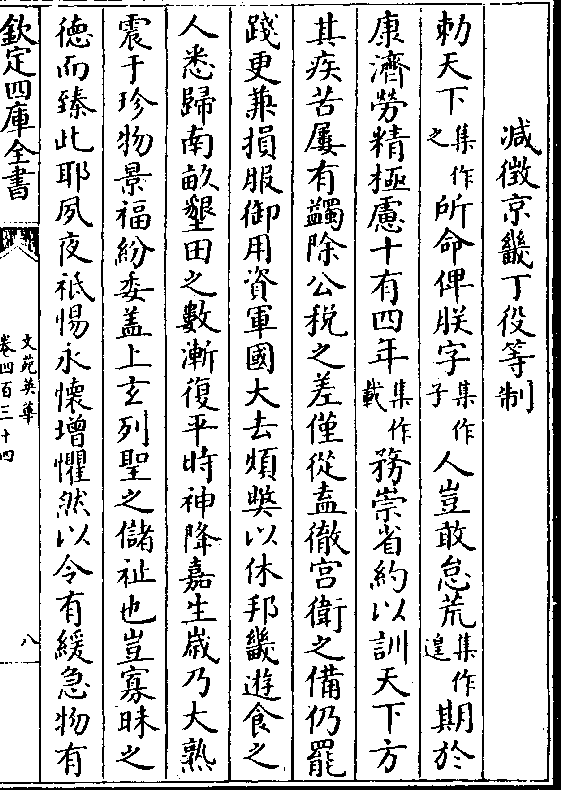 減徴京畿丁役等制
勑天下集作之所命俾朕字集作子人豈敢怠荒集作遑期於
康濟勞精極慮十有四年集作載務崇省約以訓天下方
其疾苦屢有蠲除公税之差僅從盍徹宫衛之備仍罷
踐更兼損服御用資軍國大去煩獘以休邦畿遊食之
人悉歸南畝墾田之數漸復平時神降嘉生嵗乃大熟
震于珍物景福紛委盖上玄列聖之儲祉也豈寡昧之
德而臻此耶夙夜祗惕永懷增懼然以令有緩急物有
欽定四庫全書
文苑英華
卷四百三十四
八